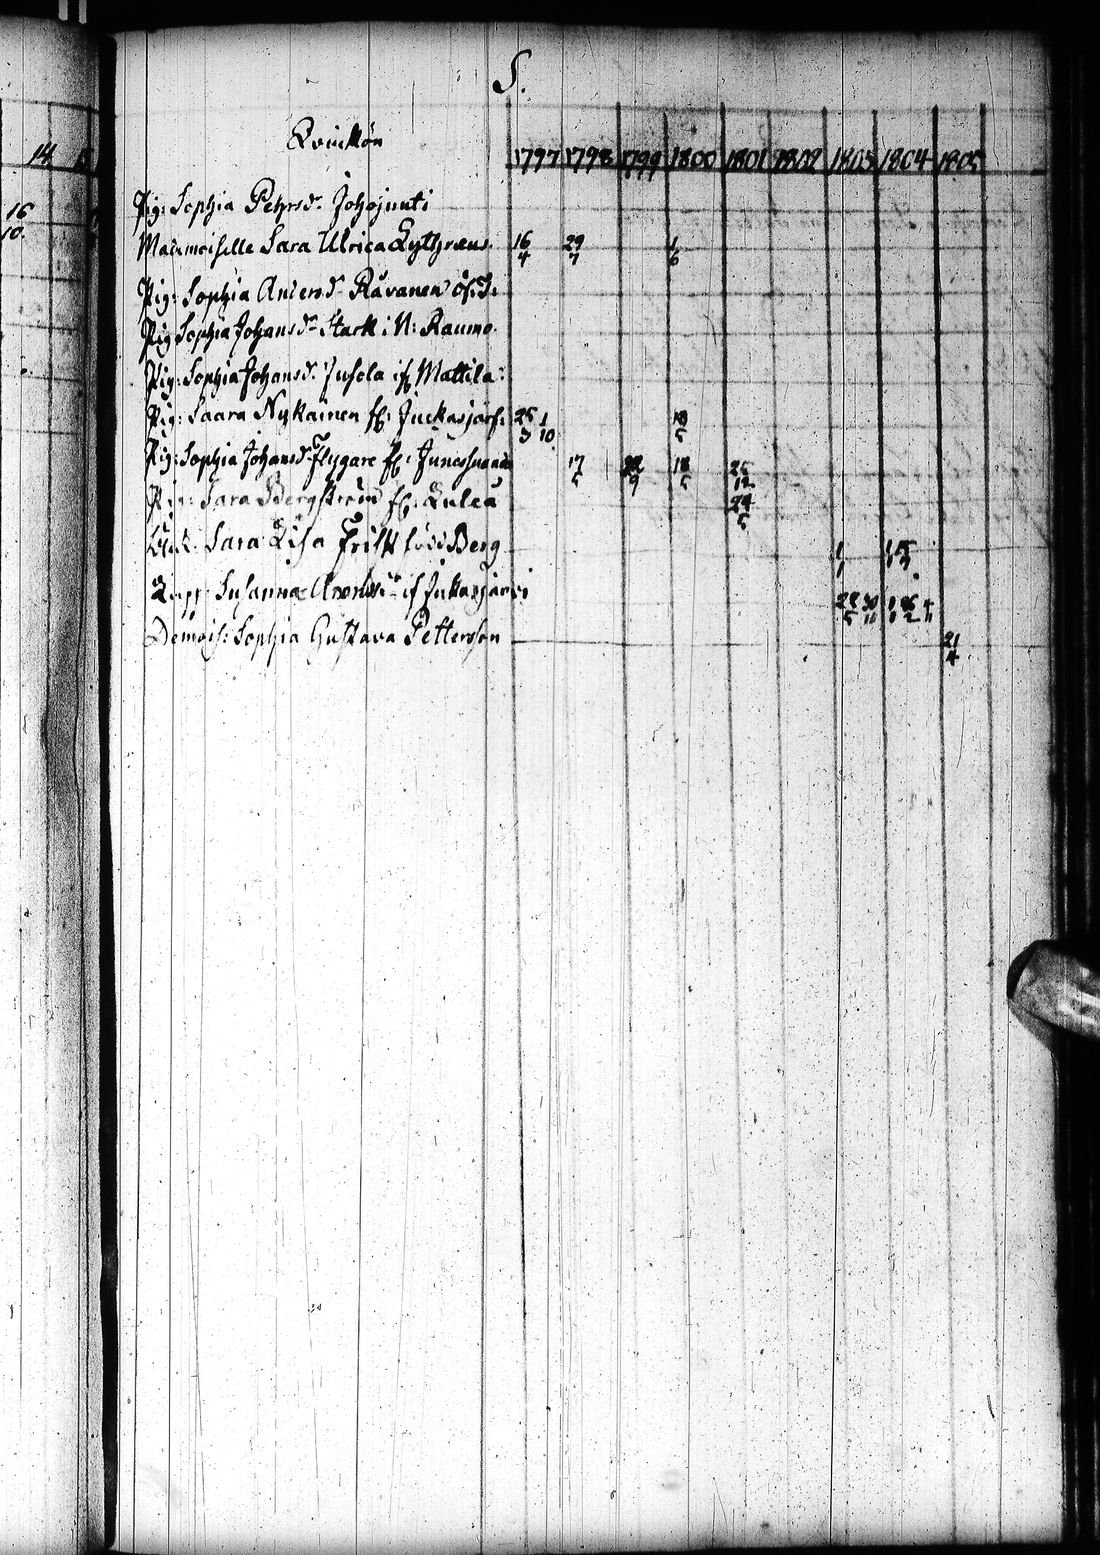 S.
Qvinkön
1797 1798 1799 1800 1801 1802 1803 1804 1805
14
16
10.
Pig: Sophia Pehrsd:r
Mademoiselle Sara Ulrica Lythræus 16/4 29/7 1/6
Pig: Sophia Andersd:r Råvanen
Pig: Sophia Johansd:r Stark i N: Raumo.
Pig: Sophia Johansd:r Jusola if Mattila
Pig: Saara Nykainen fr: Juckasjärf: 25/3 1/10 18/5
Pig: Sophia Johansd:r Flygare fr: 17/5 22/9 18/5 25/12
Pig: Sara Bergström fr: Luleå 24/5
Sara Lisa född Berg 1/1
Susanna if Juckasjärvi 28/5 30/11
Demois: Sophia Gustava Pettersson 21/4